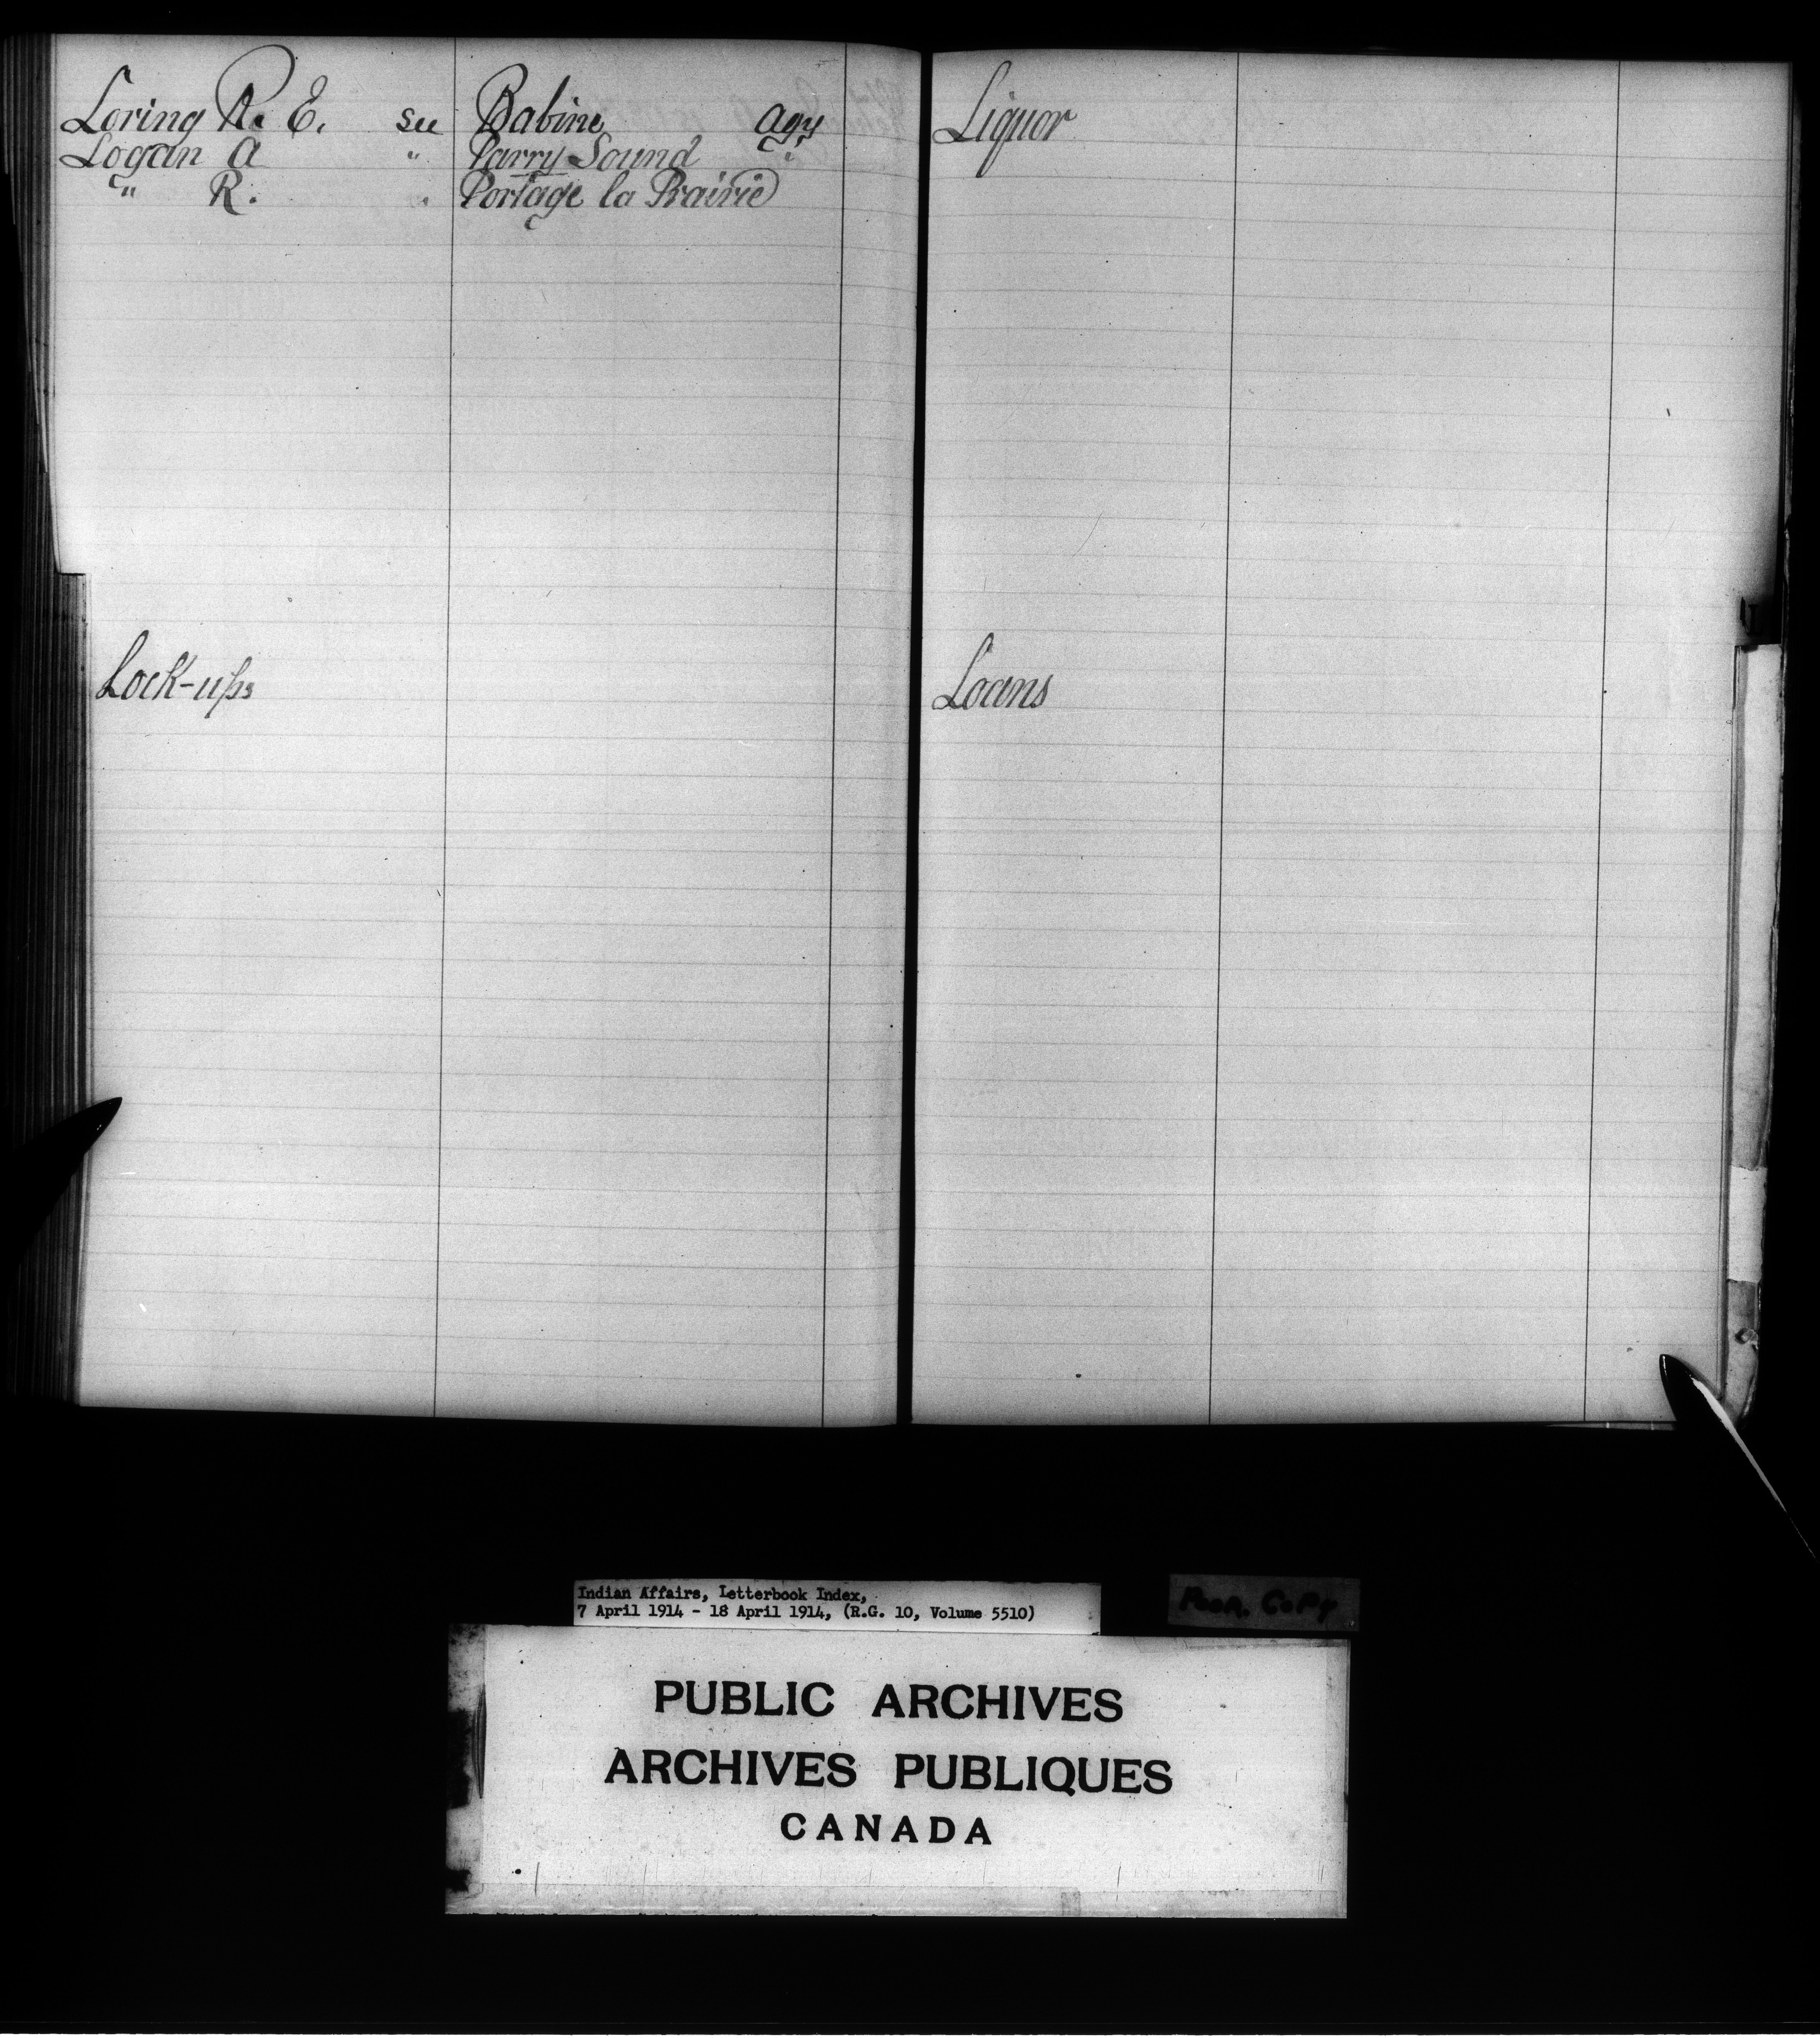 Loring R. E. see Babine Agy
Logan A " Parry Sound "
" R. " Portage la Prairie
Lock-ups
Liquor
Loans
Indian Affairs, Letterbook Index,
7 April 1914 - 18 April 1914, (R.G. 10, Volume 5510)
Poor Copy
PUBLIC ARCHIVES
ARCHIVES PUBLIQUES
CANADA